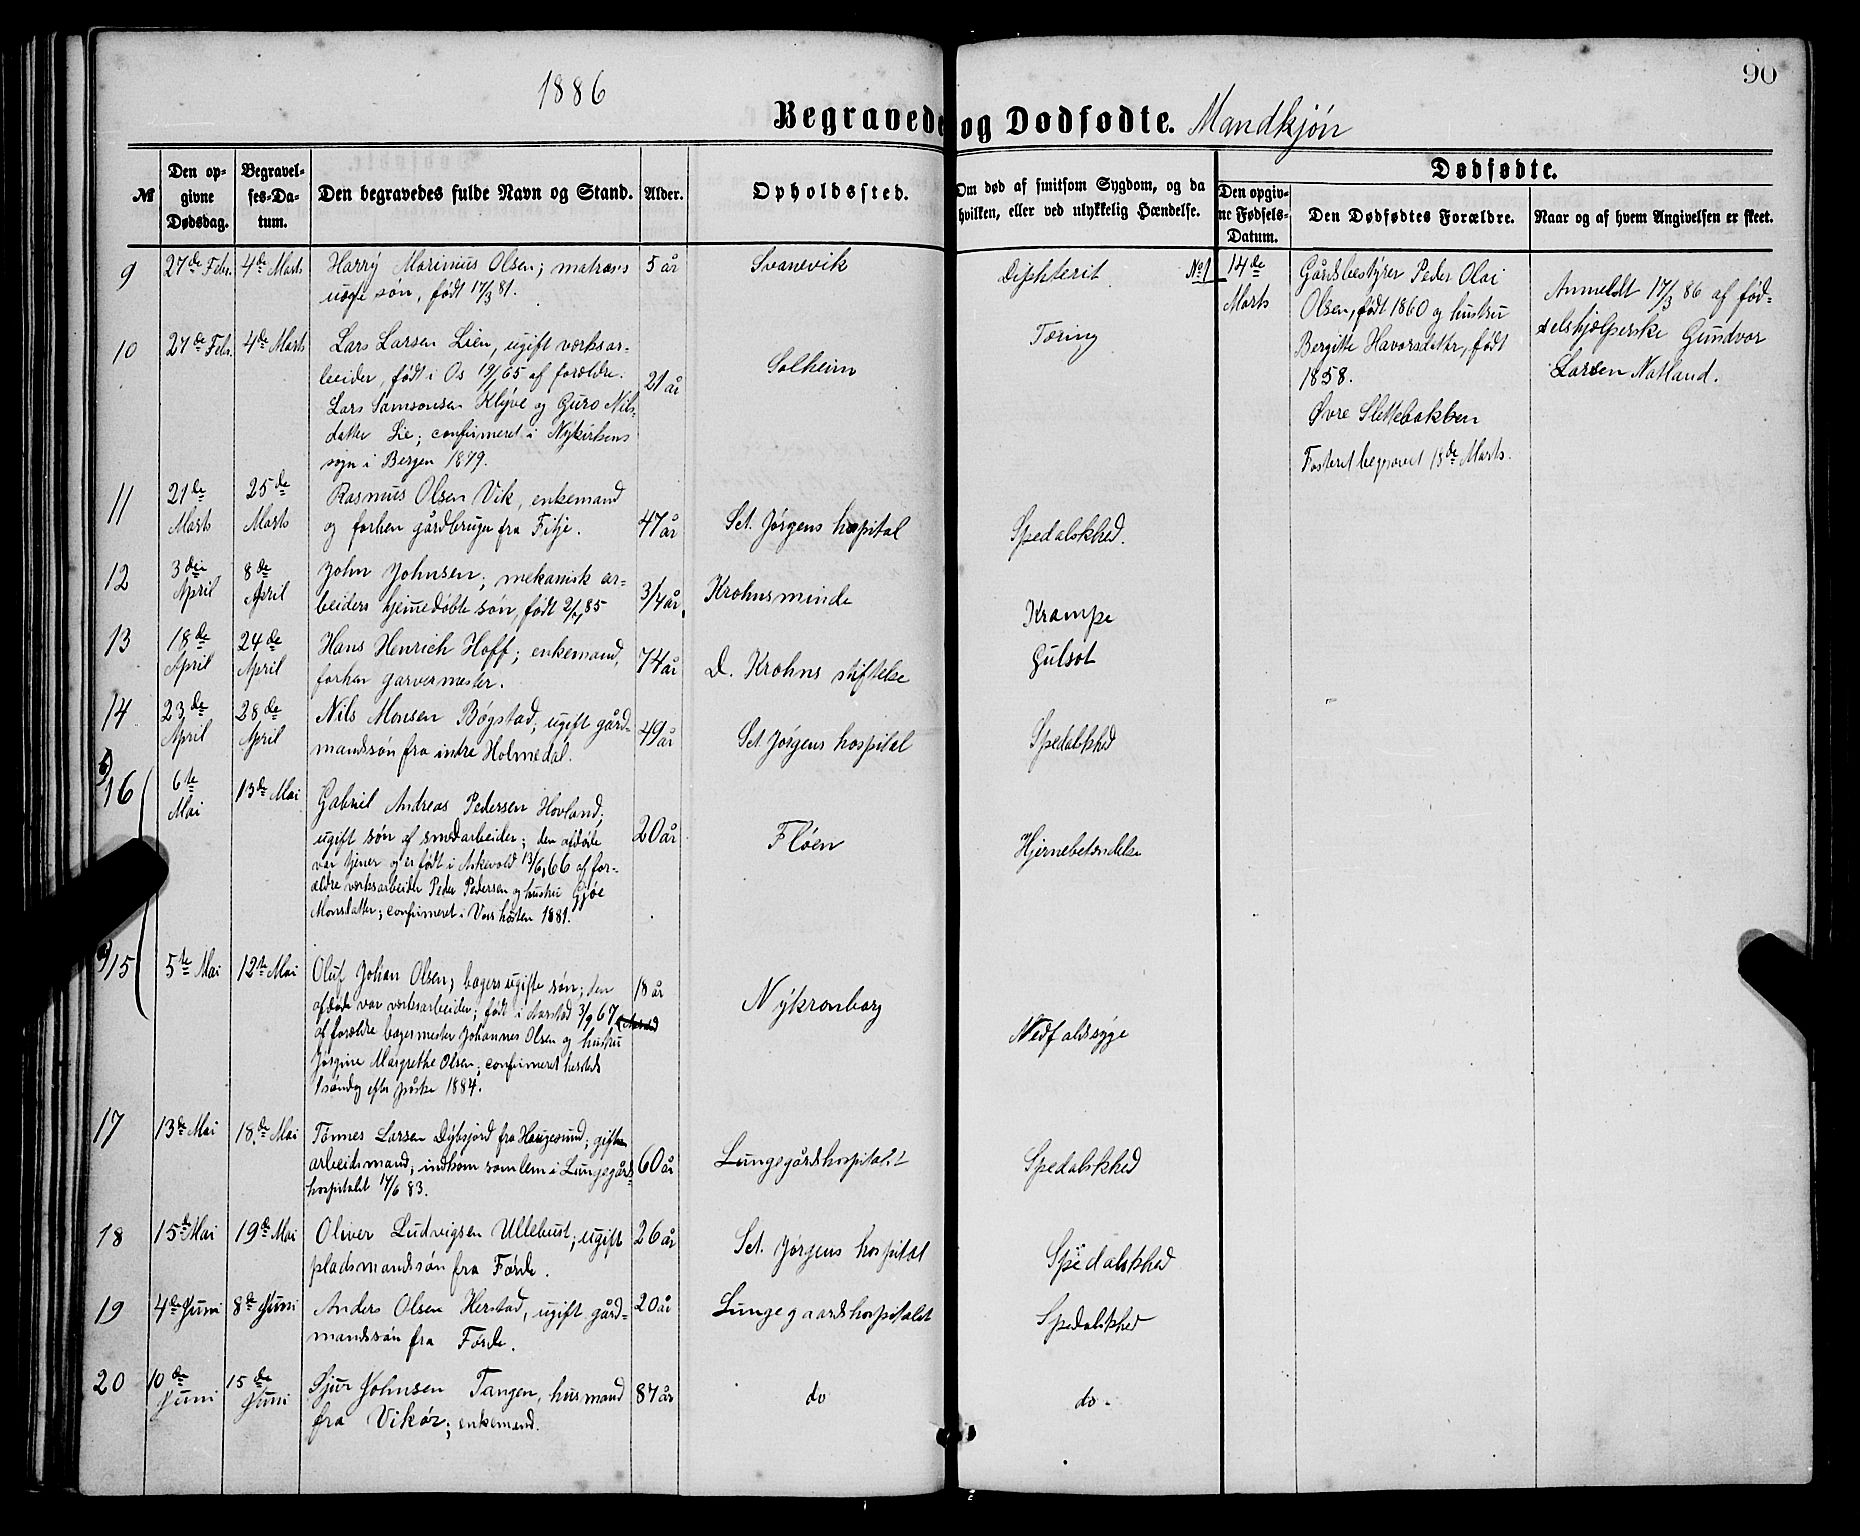 1886
90
Begravede og Dødfødte. Mandkjøn
№
Den opgivne Dødsdag.
Begravelses-Datum.
Den begravedes fulde Navn og Stand.
Alder.
Opholdssted.
Om død af smitsom Sygdom, og da
hvilken, eller ved ulykkelig Hændelse.
Dødfødte.
Den opgivne Fødsels-Datum.
Den Dødfødtes Forældre.
Naar og af hvem Angivelsen er skeet.
9 27de Febr. 4de Marts Harry Marinius Olsen; matros 5 år Svanevik Diphterit
søn, født 17/3 81.
10 27de Febr. 4de Marts Lars Larsen Lien, ugift værksar- 21 år Solheim Tæring
beider, født i Os 19/1 65 af forældre
Lars Samsonsen Klyve og Guro Nils-
datter Lie; confirmeret i Nykirkens
sogn i Bergen 1879.
11 21de Marts 25de Marts Rasmus Olsen Vik, enkemand 47 år Sct. Jørgens hospital Spedalskhed.
og forhen gårdbruger fra Fitje.
12 3die April 8de April John Johnsen; mekanisk ar- 3/4 år Krohnsminde Krampe
beiders hjemmedøbte søn, født 2/7 85
13 18de April 24de April Hans Henrich Hoff; enkemand, 74 år D. Krohns stiftelse Gulsot
forhen garvermester.
14 23de April 28de April Nils Monsen Bøgstad; ugift gård- 49 år Sct. Jørgens hospital Spedalskhed
mandssøn fra indre Holmedal.
16 6te Mai 13de Mai Gabriel Andreas Pedersen Hovland; 20 år Fløen Hjernebetændelse
ugift søn af smedarbeider; den afdøde
var tjener og er født i Askevold 13/6 66 af for-
ældre værksarbeider Peder Pedersen og hustru Gjøe
Monsdatter; confirmeret i Vors høsten 1881.
15 5te Mai 12te Mai Oluf Johan Olsen; bagers ugifte søn; den 18 år Nykronborg Nedfaldssyge
afdøde var værksarbeider; født i Aarstad 3/9 67
af forældre bagermester Johannes Olsen og hustru
Jørgine Margrethe Olsen; confirmeret
1 søndag efter påske 1884.
17 13de Mai 18de Mai Tønnes Larsen Dybsjord fra Haugesund; gift 60 år Lungegårdshospitalet Spedalskhed
arbeidsmand; indkom som lem i Lungegårds-
hospitalet 17/6 83.
18 15de Mai 19de Mai Oliver Ludvigsen Ullebust; ugift 26 år Sct. Jørgens hospital Spedalskhed
pladsmandssøn fra Førde.
19 4de Juni 8de Juni Anders Olsen Herstad, ugift gård- 20 år Lungegaardshospitalet Spedalskhed
mandssøn fra Førde.
20 10de Juni 15de Juni Sjur Johnsen Tangen, husmand 87 år do do.
fra Vikør; enkemand.
№ 1 14de Marts
Gårdsbestyrer Peder Olai
Olsen, født 1860 og hustru
Bergitte Havorsdatter, født
1858.
Øvre Slettebakken
Fosteret begravet 18de Marts.
Anmeldt 17/3 86 af fød-
selshjælperske Gundvor
Larsen Natland.